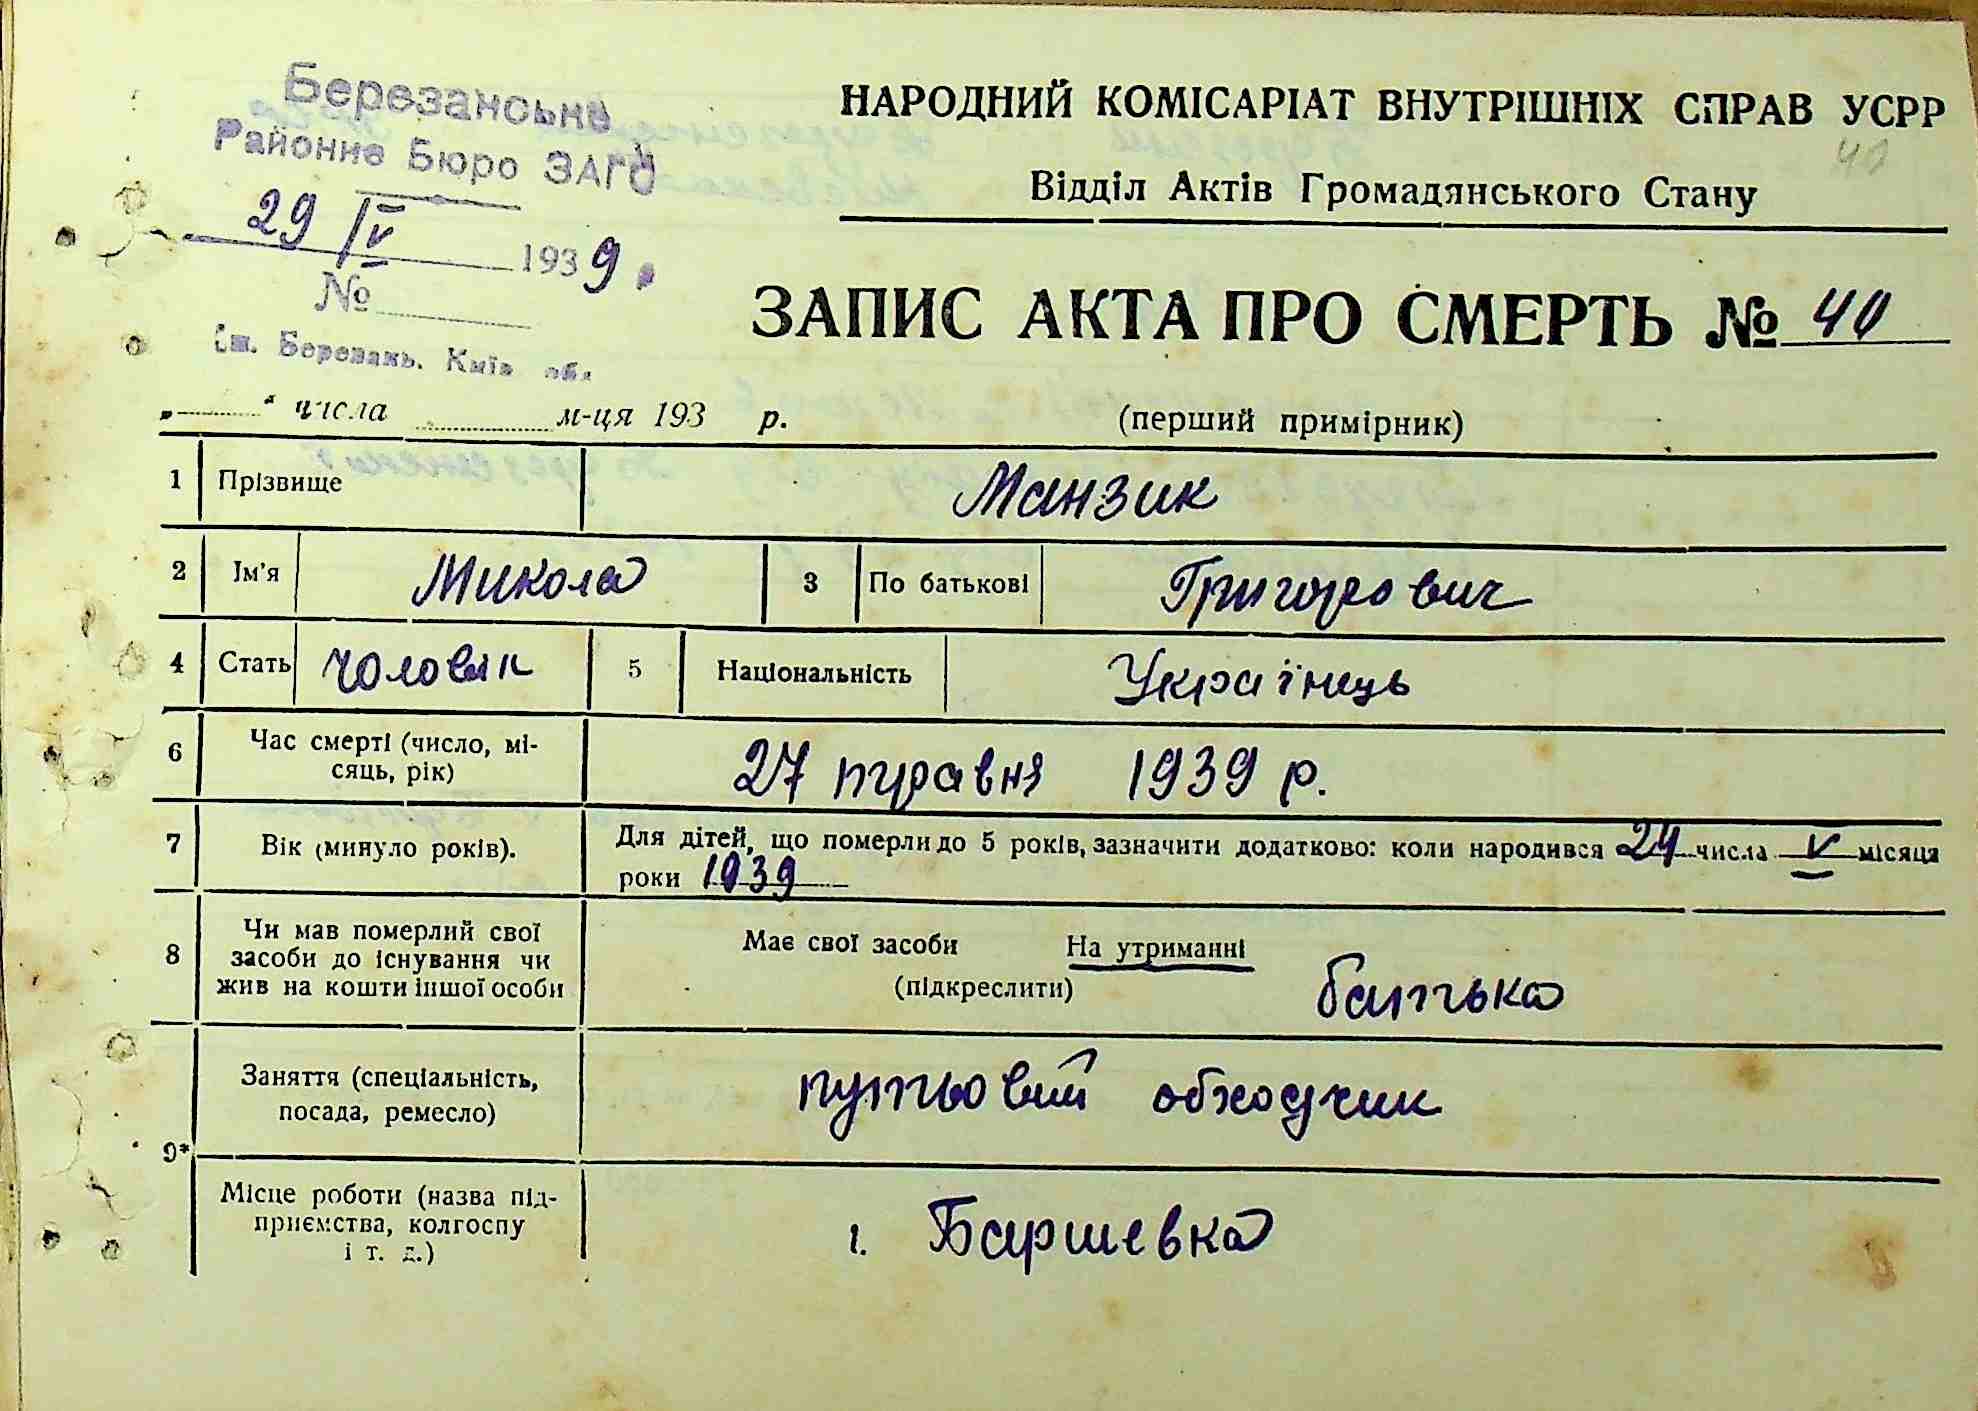 Березанське
Районне Бюро ЗАГС
29 IV 1939.
№
ст. Березань. Київ обл
НАРОДНИЙ КОМІСАРІАТ ВНУТРІШНІХ СПРАВ УСРР
40
Відділ Актів Громадянського Стану
ЗАПИС АКТА ПРО СМЕРТЬ № 40
„ “ числа м-ця 193 р. (перший примірник)
1 Прізвище Манзик
2 Ім'я Микола 3 По батькові Григорович
4 Стать чоловік 5 Національність Українець
6 Час смерті (число, мі-
сяць, рік) 27 травня 1939 р.
7 Вік (минуло років). Для дітей, що померли до 5 років, зазначити додатково: коли народився 24 числа V місяця
роки 1939
8 Чи мав померлий свої
засоби до існування чи
жив на кошти іншої особи
Має свої засоби На утриманні
(підкреслити) батька
9* Заняття (спеціальність,
посада, ремесло) путьовий обходчик
Місце роботи (назва під-
приємства, колгоспу
і т. д.)
Баришевка